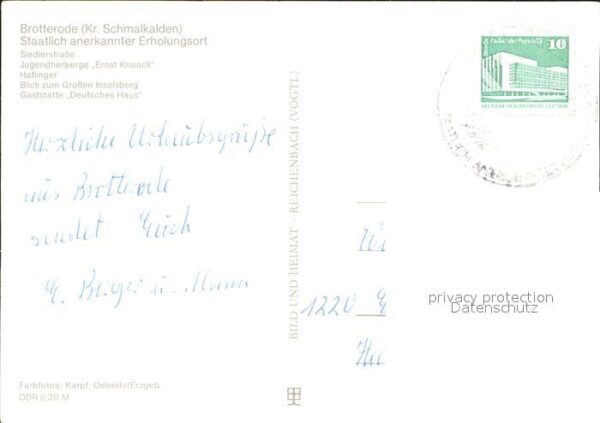 Brotterode (Kr. Schmalkalden)
Staatlich anerkannter Erholungsort
Siedlerstraße
Jugendherberge „Ernst Knaack"
Haflinger
Blick zum Großen Inselsberg
Gaststätte „Deutsches Haus"
Herzliche Urlaubsgrüße
aus Brotterode
sendet Euch
E. Berger u. Mann
Farbfotos: Karpf, Oelsnitz/Erzgeb.
DDR 0,20 M
BILD UND HEIMAT · REICHENBACH (VOGTL)
Berlin Palast der Republik
10
DEUTSCHE DEMOKRATISCHE REPUBLIK
1220
privacy protection
Datenschutz